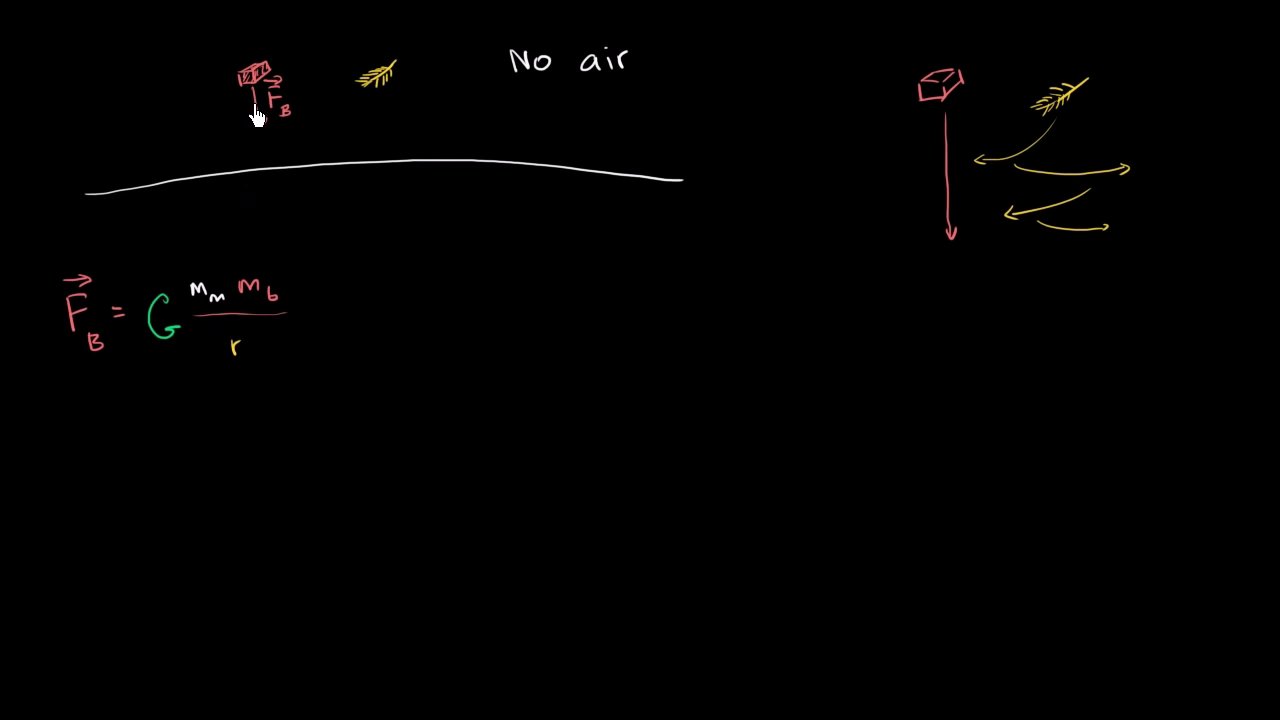 No air
F⃗_B
F⃗_B = G (m_m m_b) / r